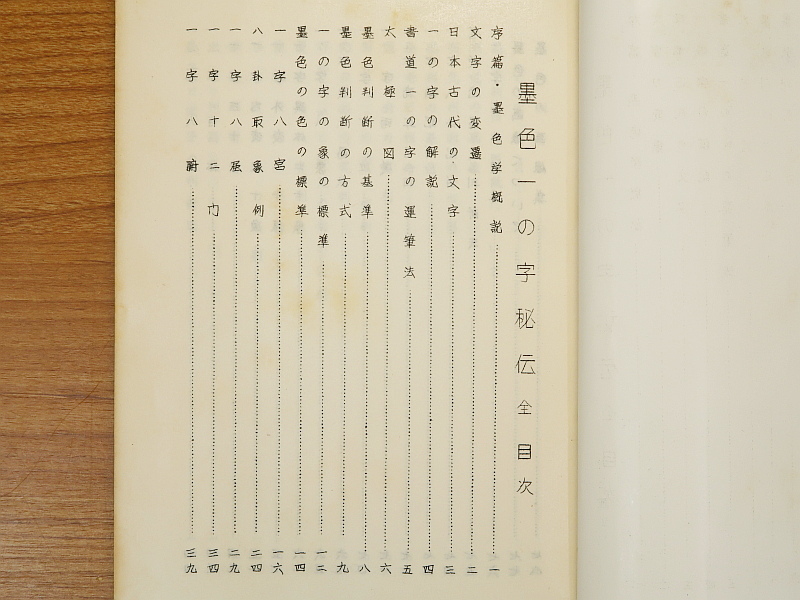 墨色一の字秘伝全目次
序篇・墨色学概説 一
文字の変遷 二
日本古代の文字 三
一の字の解説 四
書道一の字の運筆法 五
太極図 六
墨色判断の基準 八
墨色判断の方式 九
一の字の象の標準 一二
墨色の色の標準 一四
一字八宮 一六
八卦取象例 二四
一字八 二九
一字十二門 三四
一字八 三九